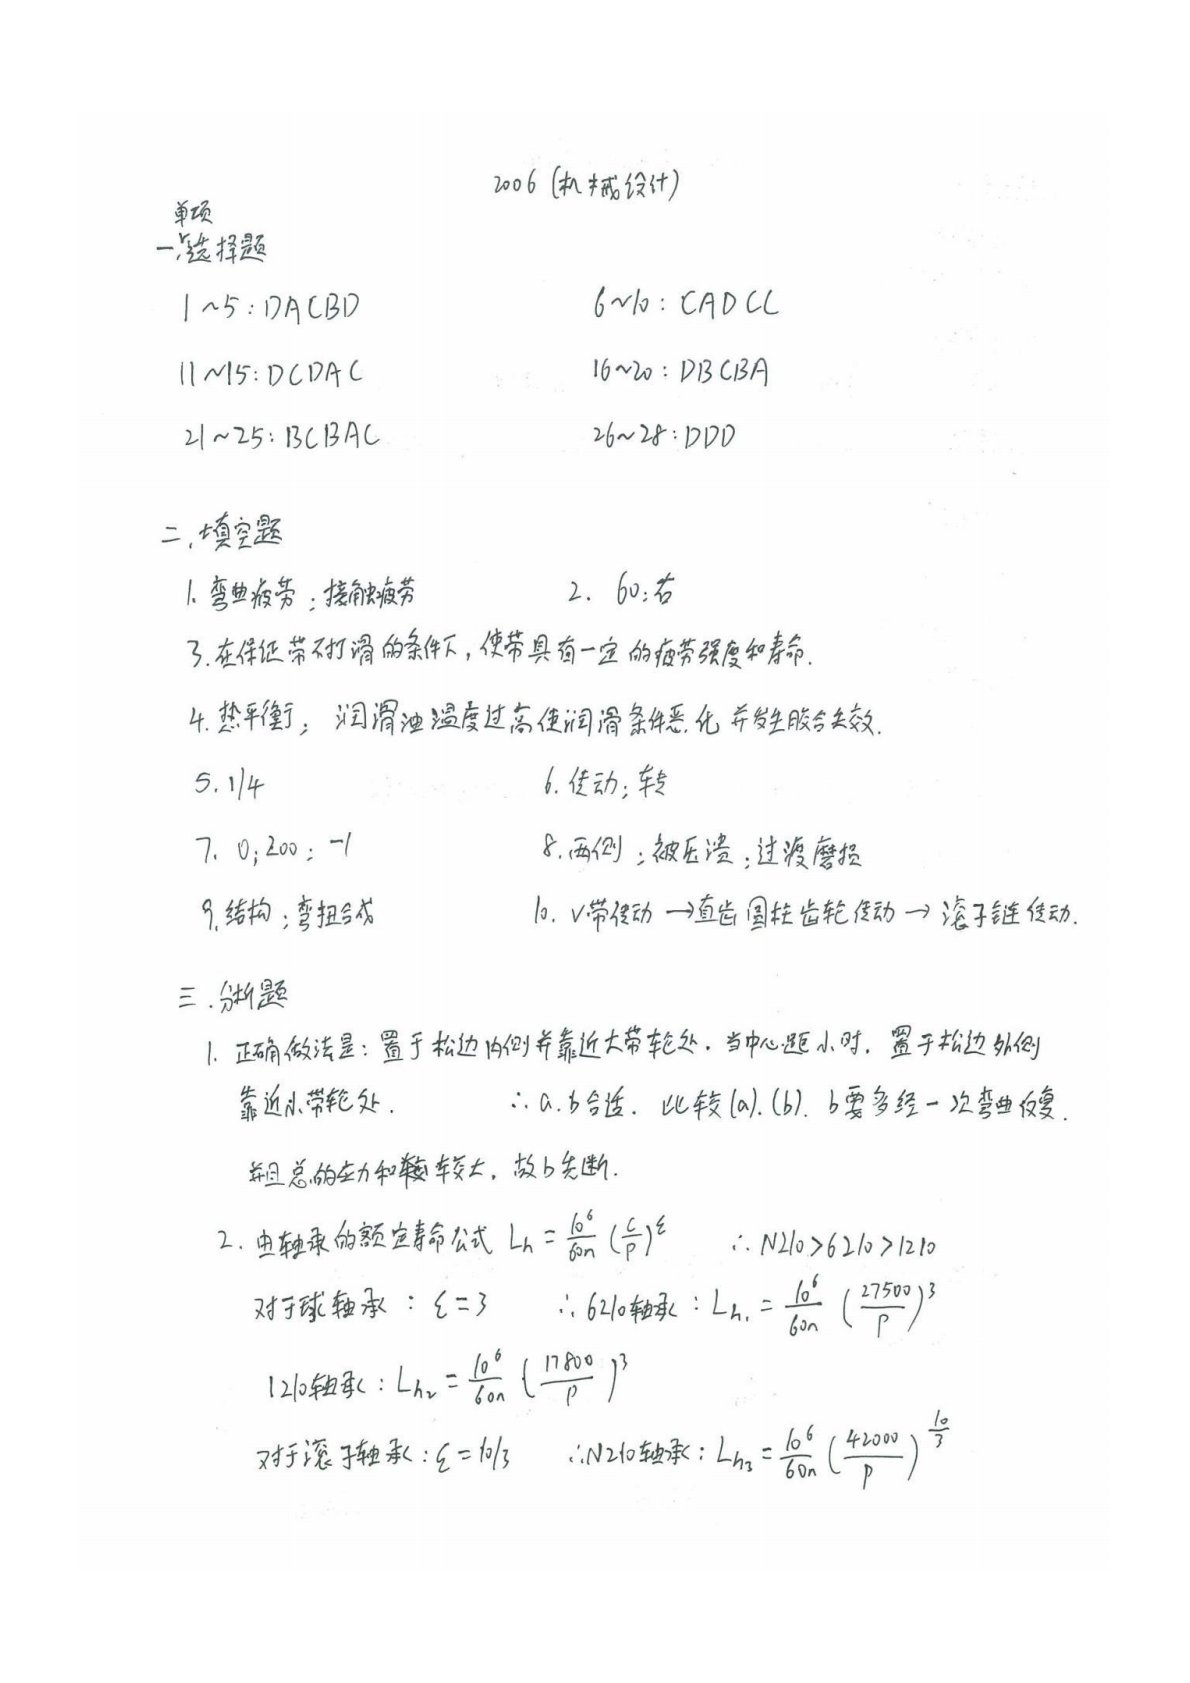 2006 (机械设计)
单项
一、选择题
1~5: DACBD 6~10: CADCC
11~15: DCDAC 16~20: DBCBA
21~25: BCBAC 26~28: DDD
二、填空题
1. 弯曲疲劳；接触疲劳 2. 60；右
3. 在保证带不打滑的条件下，使带具有一定的疲劳强度和寿命.
4. 热平衡； 润滑油温度过高使润滑条件恶化并发生胶合失效.
5. 1/4 6. 传动；转
7. 0；200；-1 8. 两侧；被压溃；过渡磨损
9. 结构；弯扭合成 10. V带传动→直齿圆柱齿轮传动→滚子链传动.
三.分析题
1. 正确做法是：置于松边内侧并靠近大带轮处. 当中心距小时，置于松边外侧
靠近小带轮处. ∴a.b合适. 比较(a).(b). b要多经一次弯曲反复.
并且总的应力和 较大，故b先断.
2. 由轴承的额定寿命公式 Lh = 10^6/60n (C/P)^ε ∴N210>6210>1210
对于球轴承：ε=3 ∴6210轴承：Lh1 = 10^6/60n (27500/P)^3
1210轴承：Lh2 = 10^6/60n (17800/P)^3
对于滚子轴承：ε=10/3 ∴N210轴承：Lh3 = 10^6/60n (42000/P)^10/3